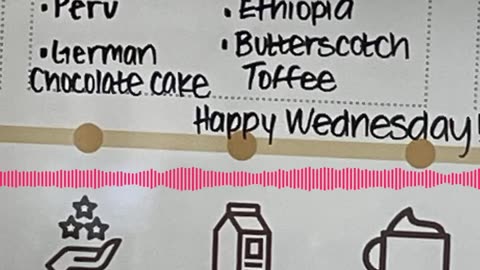 • Peru
• Ethiopia
• German
Chocolate cake
• Butterscotch
Toffee
Happy Wednesday!